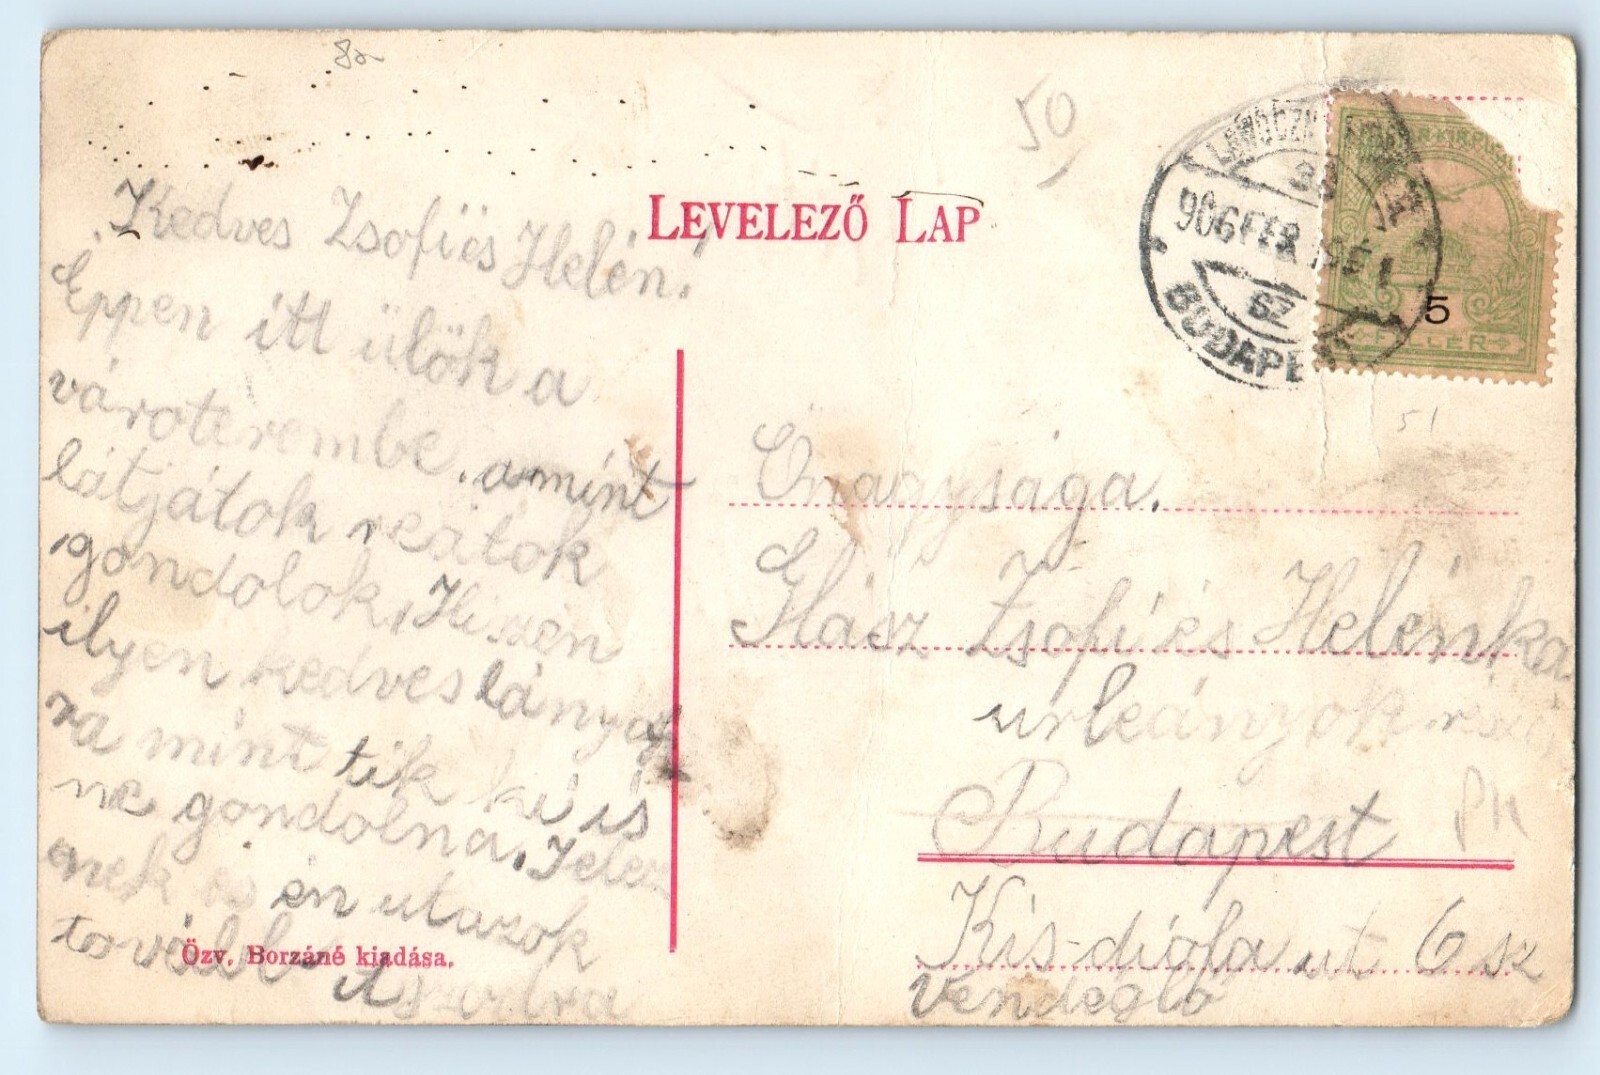 8a
50
LEVELEZŐ LAP
906 FEB
62
BUDAPE
5
FILLÉR
51
Kedves Zsofi és Helén!
Éppen itt ülök a
vároterembe. amint
látjátok reátok
gondolok, Hiszen
ilyen kedves lányok
ra mint tik ki is
ne gondolna. Jelez
én utazok
tovább
Özv. Borzáné kiadása.
Őnagysága.
Hász Zsofi és Helénka
urleányok
Budapest
Kis-diófa ut 6 sz
Vendéglő